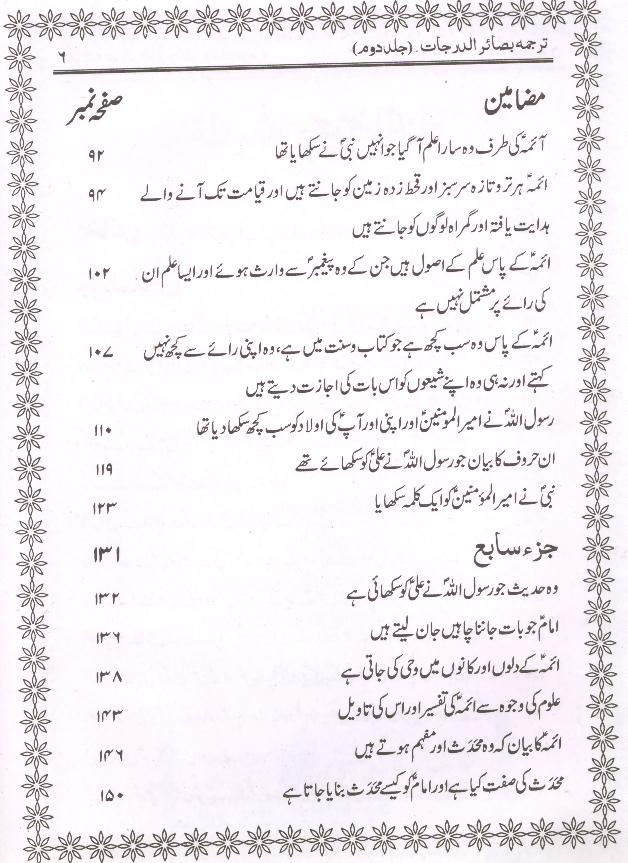 ترجمہ بصائر الدرجات۔(جلد دوم) ۶
مضامین صفحہ نمبر
آئمہؑ کی طرف وہ سارا علم آ گیا جو انہیں نبیؐ نے سکھایا تھا ۹۲
ائمہؑ ہر تر و تازہ سرسبز اور قحط زدہ زمین کو جانتے ہیں اور قیامت تک آنے والے ۹۴
ہدایت یافتہ اور گمراہ لوگوں کو جانتے ہیں
ائمہؑ کے پاس علم کے اصول ہیں جن کے وہ پیغمبرؐ سے وارث ہوئے اور ایسا علم ان ۱۰۲
کی رائے پر مشتمل نہیں ہے
ائمہؑ کے پاس وہ سب کچھ ہے جو کتاب و سنت میں ہے، وہ اپنی رائے سے کچھ نہیں ۱۰۷
کہتے اور نہ ہی وہ اپنے شیعوں کو اس بات کی اجازت دیتے ہیں
رسول اللہؐ نے امیر المومنینؑ اور اپنی اور آپؑ کی اولاد کو سب کچھ سکھا دیا تھا ۱۱۰
ان حروف کا بیان جو رسول اللہؐ نے علیؑ کو سکھائے تھے ۱۱۹
نبیؐ نے امیر المؤمنینؑ کو ایک کلمہ سکھایا ۱۲۳
جزء سابع ۱۳۱
وہ حدیث جو رسول اللہؐ نے علیؑ کو سکھائی ہے ۱۳۲
امامؑ جو بات جاننا چاہیں جان لیتے ہیں ۱۳۶
ائمہؑ کے دلوں اور کانوں میں وحی کی جاتی ہے ۱۳۸
علوم کی وجوہ سے ائمہؑ کی تفسیر اور اس کی تاویل ۱۴۳
ائمہؑ کا بیان کہ وہ محدَث اور مفہم ہوتے ہیں ۱۴۶
محدَث کی صفت کیا ہے اور امامؑ کو کیسے محدَث بنایا جاتا ہے ۱۵۰